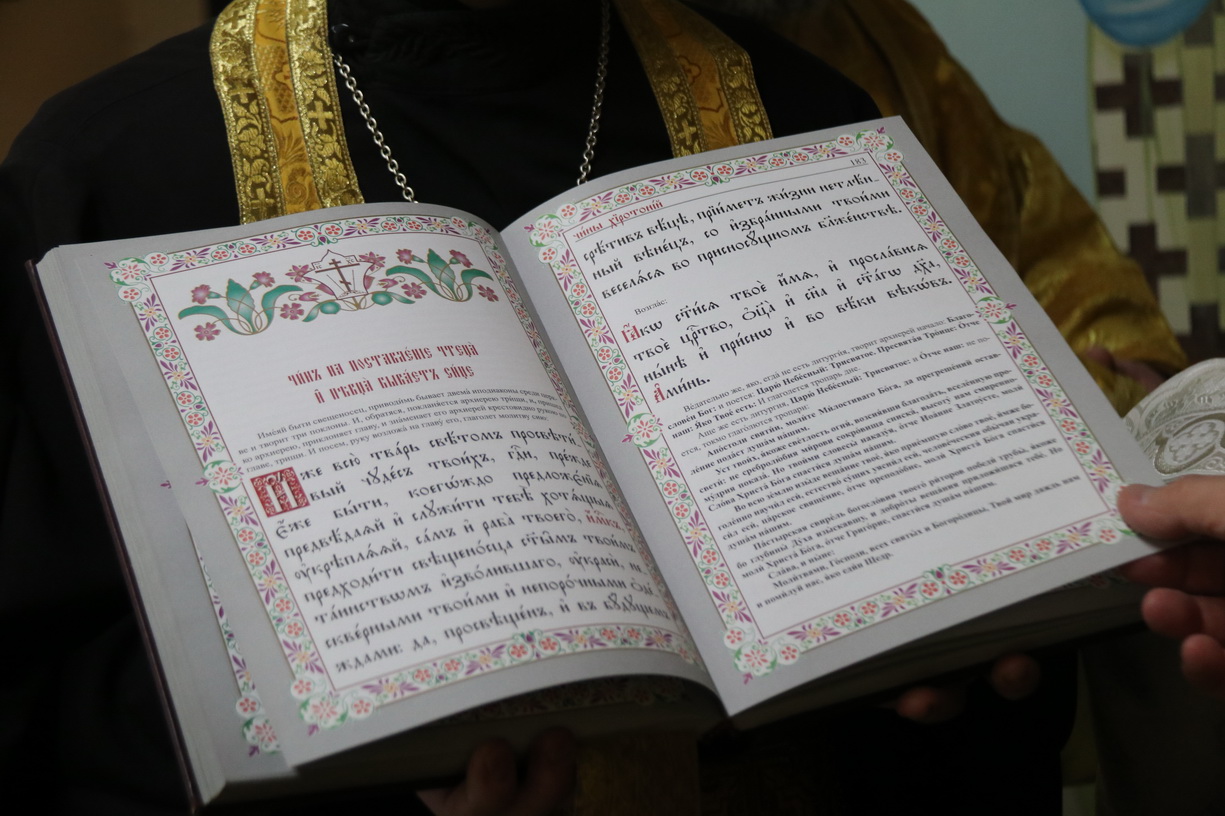 чи́нъ на поставле́нїе чтеца̀
и҆ пѣвца̀ быва́етъ си́це
Име́яй бы́ти свещено́сец, приводи́мь быва́ет двема́ иподиа́коны среди́
во архиере́ю приклоня́ет главу́, и зна́менает его́ архиере́й крестови́дно руко́ю
главе́, три́щи. И посе́м, ру́ку возло́жь на главу́ его́, глаго́лет
И҆́же всю̀ тва́рь свѣ́томъ просвѣти́
вый чꙋде́съ твои́хъ, гдⷭ҇и, пре́жде
є҆́же бы́ти, коегѡ́ждо предложе́нїѧ
предвѣ́дѧй и҆ слꙋжи́ти тебѣ̀ хотѧ́щыѧ
ᲂу҆крѣплѧ́ѧй, са́мъ и҆ раба̀ твоего̀, и҆́мкъ,
предходи́ти свѣщено́сца ст҃ы̑мъ твои̑мъ
та́инствѡмъ и҆зво́лившаго, ᲂу҆красѝ, не
скве́рными твои́ми и҆ непоро́чными
жда́ми: да, просвѣще́нъ, и҆ въ бꙋ́дꙋщемъ
чи́ны хїрото́нїй 183
срѣ́тивъ вѣ́цѣ, прїи́метъ жи́зни нетлѣ́н-
ный вѣне́цъ, со и҆збра́нными твои́ми
веселѧ́сѧ во присносꙋ́щномъ бл҃же́нствѣ.
Возгла́с:
Ꙗ҆́кѡ ст҃и́сѧ твоѐ и҆́мѧ, и҆ просла́висѧ
твоѐ црⷭ҇тво, ѻ҆ц҃а̀ и҆ сн҃а и҆ ст҃а́гѡ дх҃а,
ны́нѣ и҆ при́снѡ и҆ во вѣ́ки вѣкѡ́въ.
А҆ми́нь.
Ве́дательно же, я́ко, егда́ не есть литурги́я, твори́т архиере́й нача́ло: Благо-
слове́н Бог; и пое́тся: Царю́ Небе́сный; Трисвято́е. Пресвята́я Тро́ице; О́тче
наш; Я́ко Твое́ есть; И глаго́лется тропа́рь дне.
А́ще же есть литурги́я. Царю́ Небе́сный; Трисвято́е; и О́тче наш; не по-
ется, то́кмо глаго́лются тропари́:
Апо́столи святи́и, моли́те Ми́лостиваго Бо́га, да прегреше́ний оставле́-
ле́ние пода́ст душа́м на́шим.
Уст твои́х, я́коже све́тлость огня́, возсия́вши благода́ть, вселе́нную про-
свети́: не сребролю́бия ми́рови сокро́вища сниска́, высоту́ нам смиренно-
му́дрия показа́. Но твои́ми словесы́ наказу́я, о́тче Иоа́нне Златоу́сте, моли́
Сло́ва Христа́ Бо́га спасти́ся душа́м на́шим.
Во всю зе́млю изы́де веща́ние твое́, я́ко прие́мшую сло́во твое́, и́мже бо-
голе́пно научи́л еси́, естество́ су́щих уясни́л еси́, челове́ческия обы́чаи укра-
си́л еси́, ца́рское свяще́ние, о́тче преподо́бне, моли́ Христа́ Бо́га спасти́ся
душа́м на́шим.
Па́стырская свире́ль богосло́вия твоего́ ри́торов победи́ трубы́, я́коже
бо глубины́ Ду́ха изыска́вшу, и добро́ты веща́ния приложи́шася тебе́. Но
моли́ Христа́ Бо́га, о́тче Григо́рие, спасти́ся душа́м на́шим.
Сла́ва, и ны́не:
Моли́твами, Го́споди, всех святы́х и Богоро́дицы, Твой мир даждь нам
и поми́луй нас, я́ко еди́н Щедр.